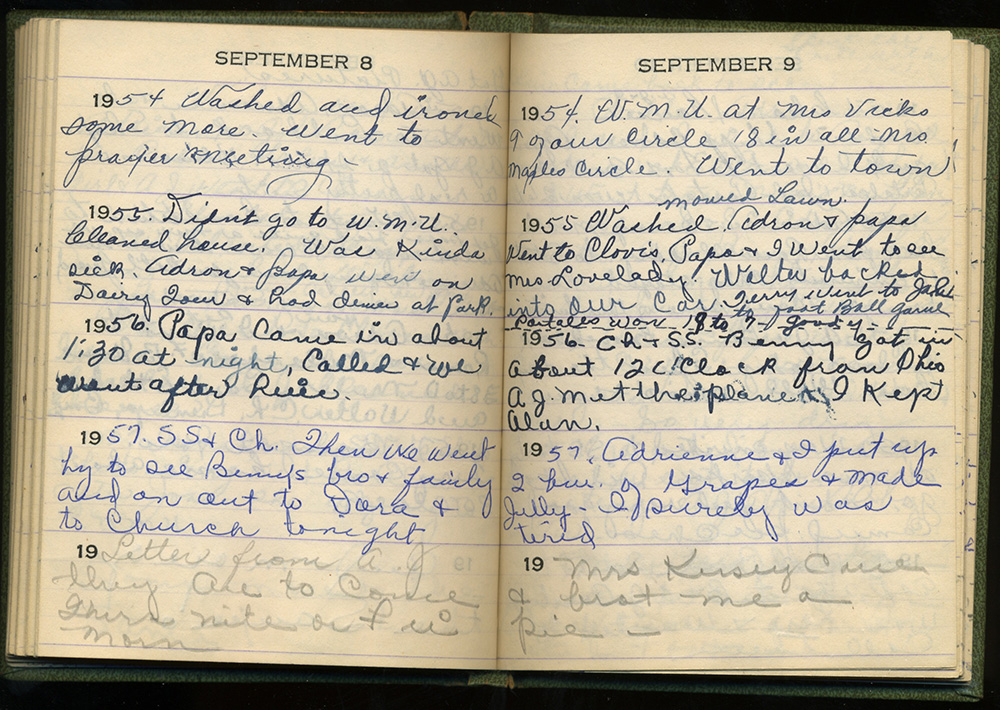 SEPTEMBER 8
1954 Washed and ironed
some more. Went to
prayer meeting -
1955. Didn't go to W.M.U.
Cleaned house. Was Kinda
sick. Adron & papa went on
Dairy Tour & had dinner at Park.
1956. Papa came in about
1:30 at night, called & we
went after him.
1957. SS & Ch. Then we went
by to see Bennys bro & family
and on out to Dora &
to Church tonight
19 Letter from A J
they are to come
Thurs nite or F in
morn
SEPTEMBER 9
1954. W.M.U. at Mrs Vicks
9 of our circle 18 in all - Mrs
Maples Circle. Went to town
mowed Lawn.
1955 Washed. Adron & papa
Went to Clovis, Papa & I went to see
Mrs. Lovelady. Walter backed
into our car. Jerry went to
to foot Ball game
Portales won 19 to 7 - goody -
1956. Ch & S.S. Benny got in
about 12 o'clock from Ohio
A.J. met the plane & I Kept
Alan.
1957. Adrienne & I put up
2 bu. of Grapes & made
Jelly - I purely was
tired
19 Mrs Kersey Came
& brot me a
pie -